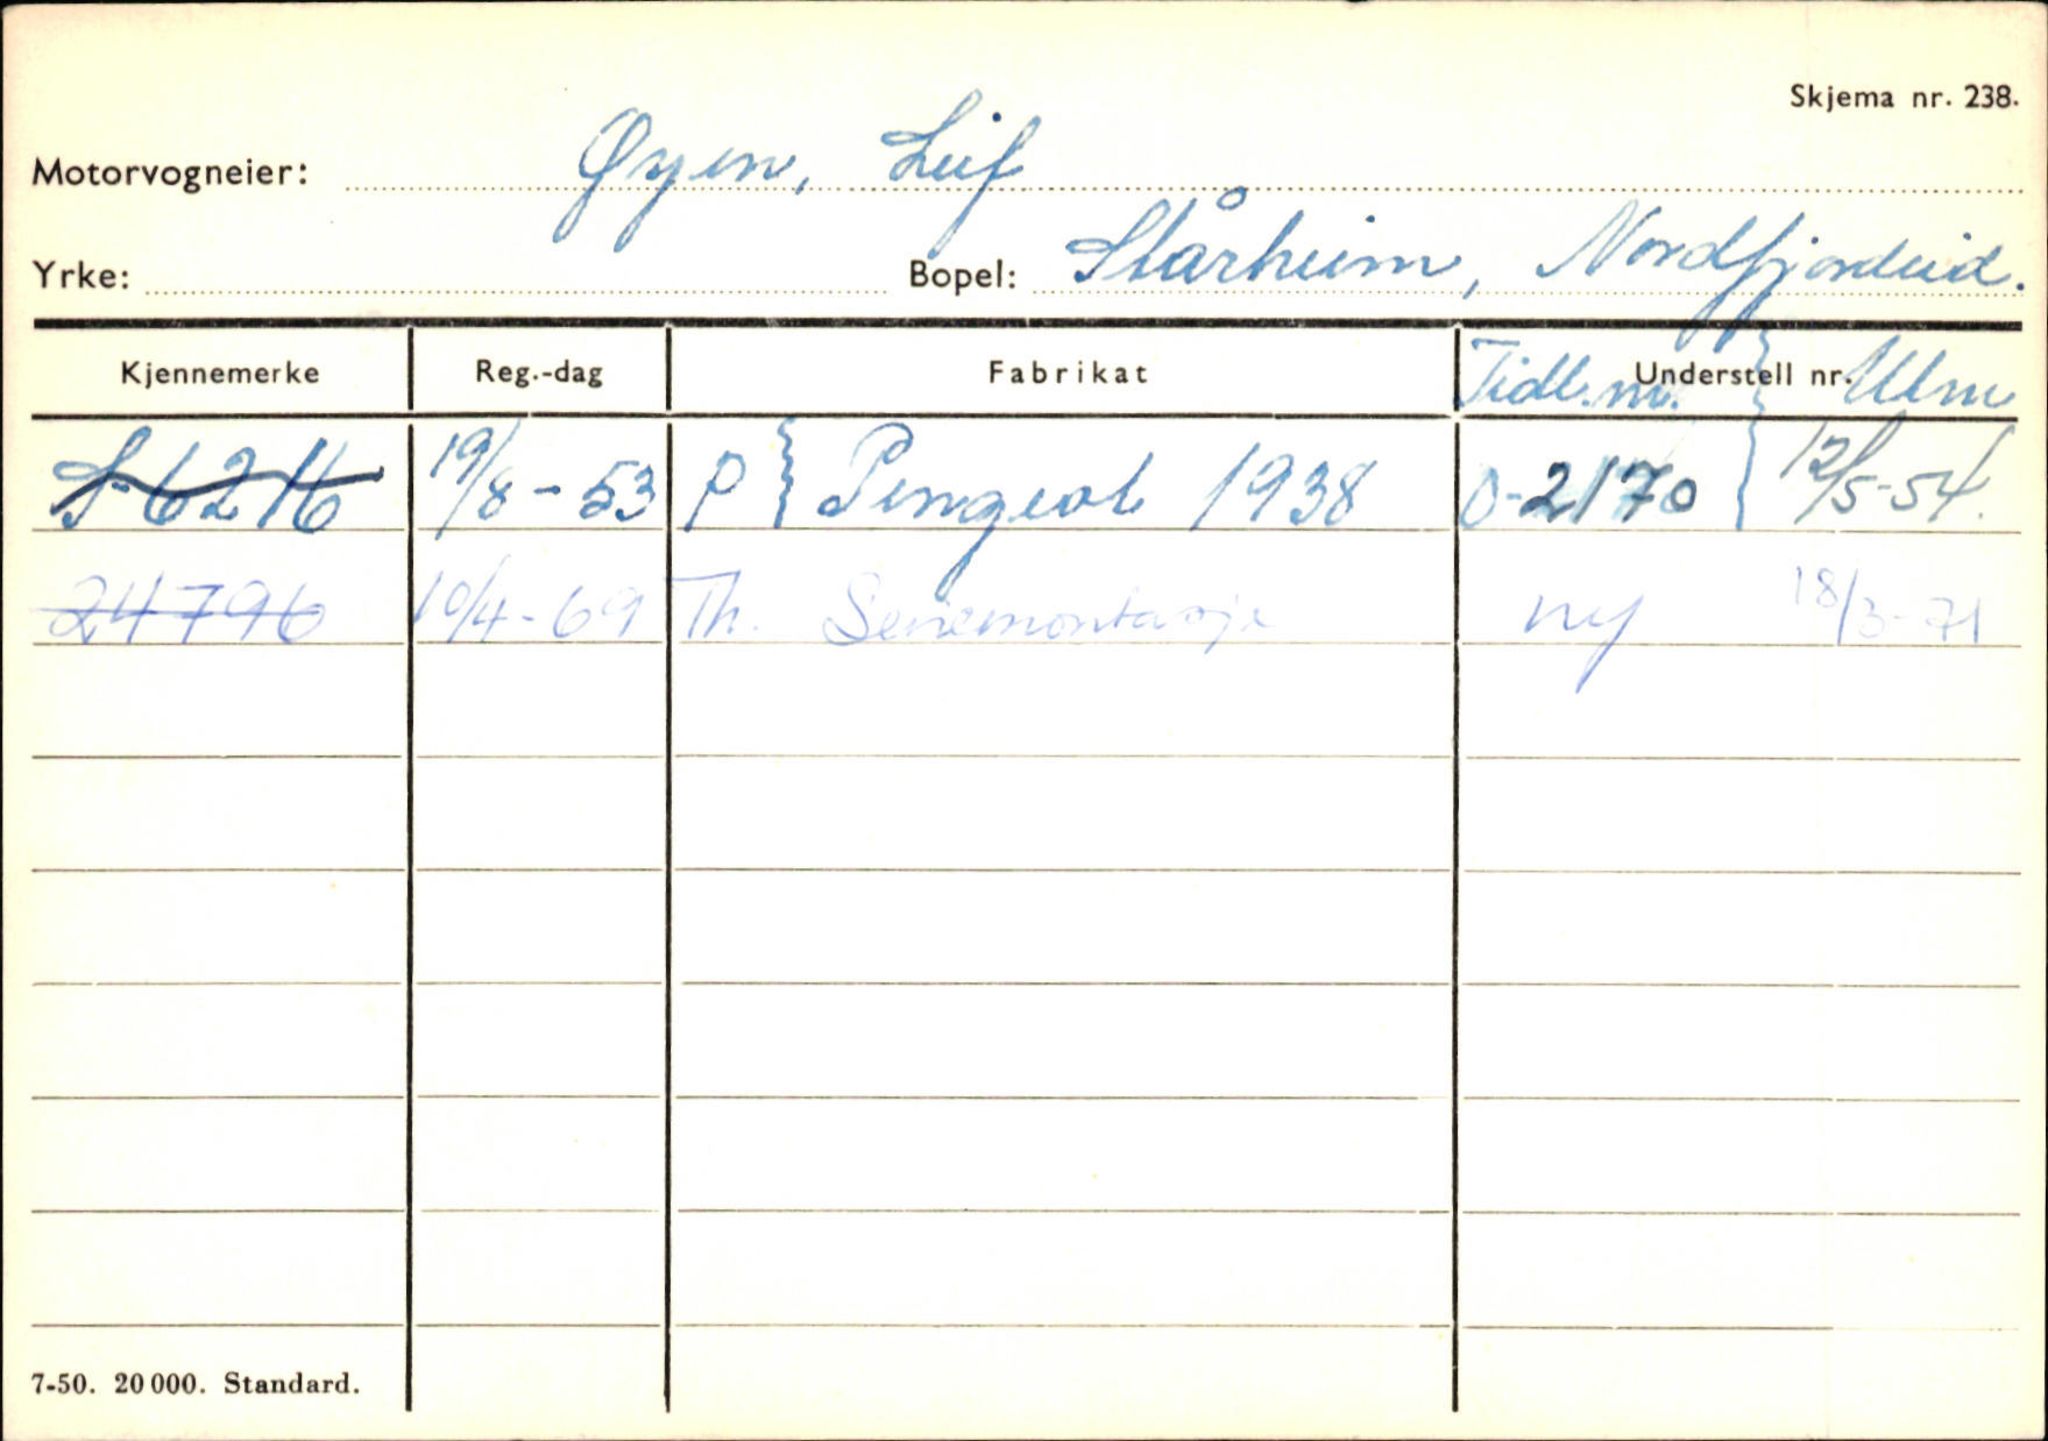 Skjema nr. 238.
Motorvogneier: Øyen, Leif
Yrke: Bopel: Stårheim, Nordfjordeid.
Kjennemerke Reg.-dag Fabrikat Tidl. nr. Understell nr. } Ulm
S-6216 19/8-53 P { Peugeot 1938 O-2170 } 12/5-54.
24796 10/4-69 Th. Seriemontasje ny 18/3-71
7-50. 20 000. Standard.